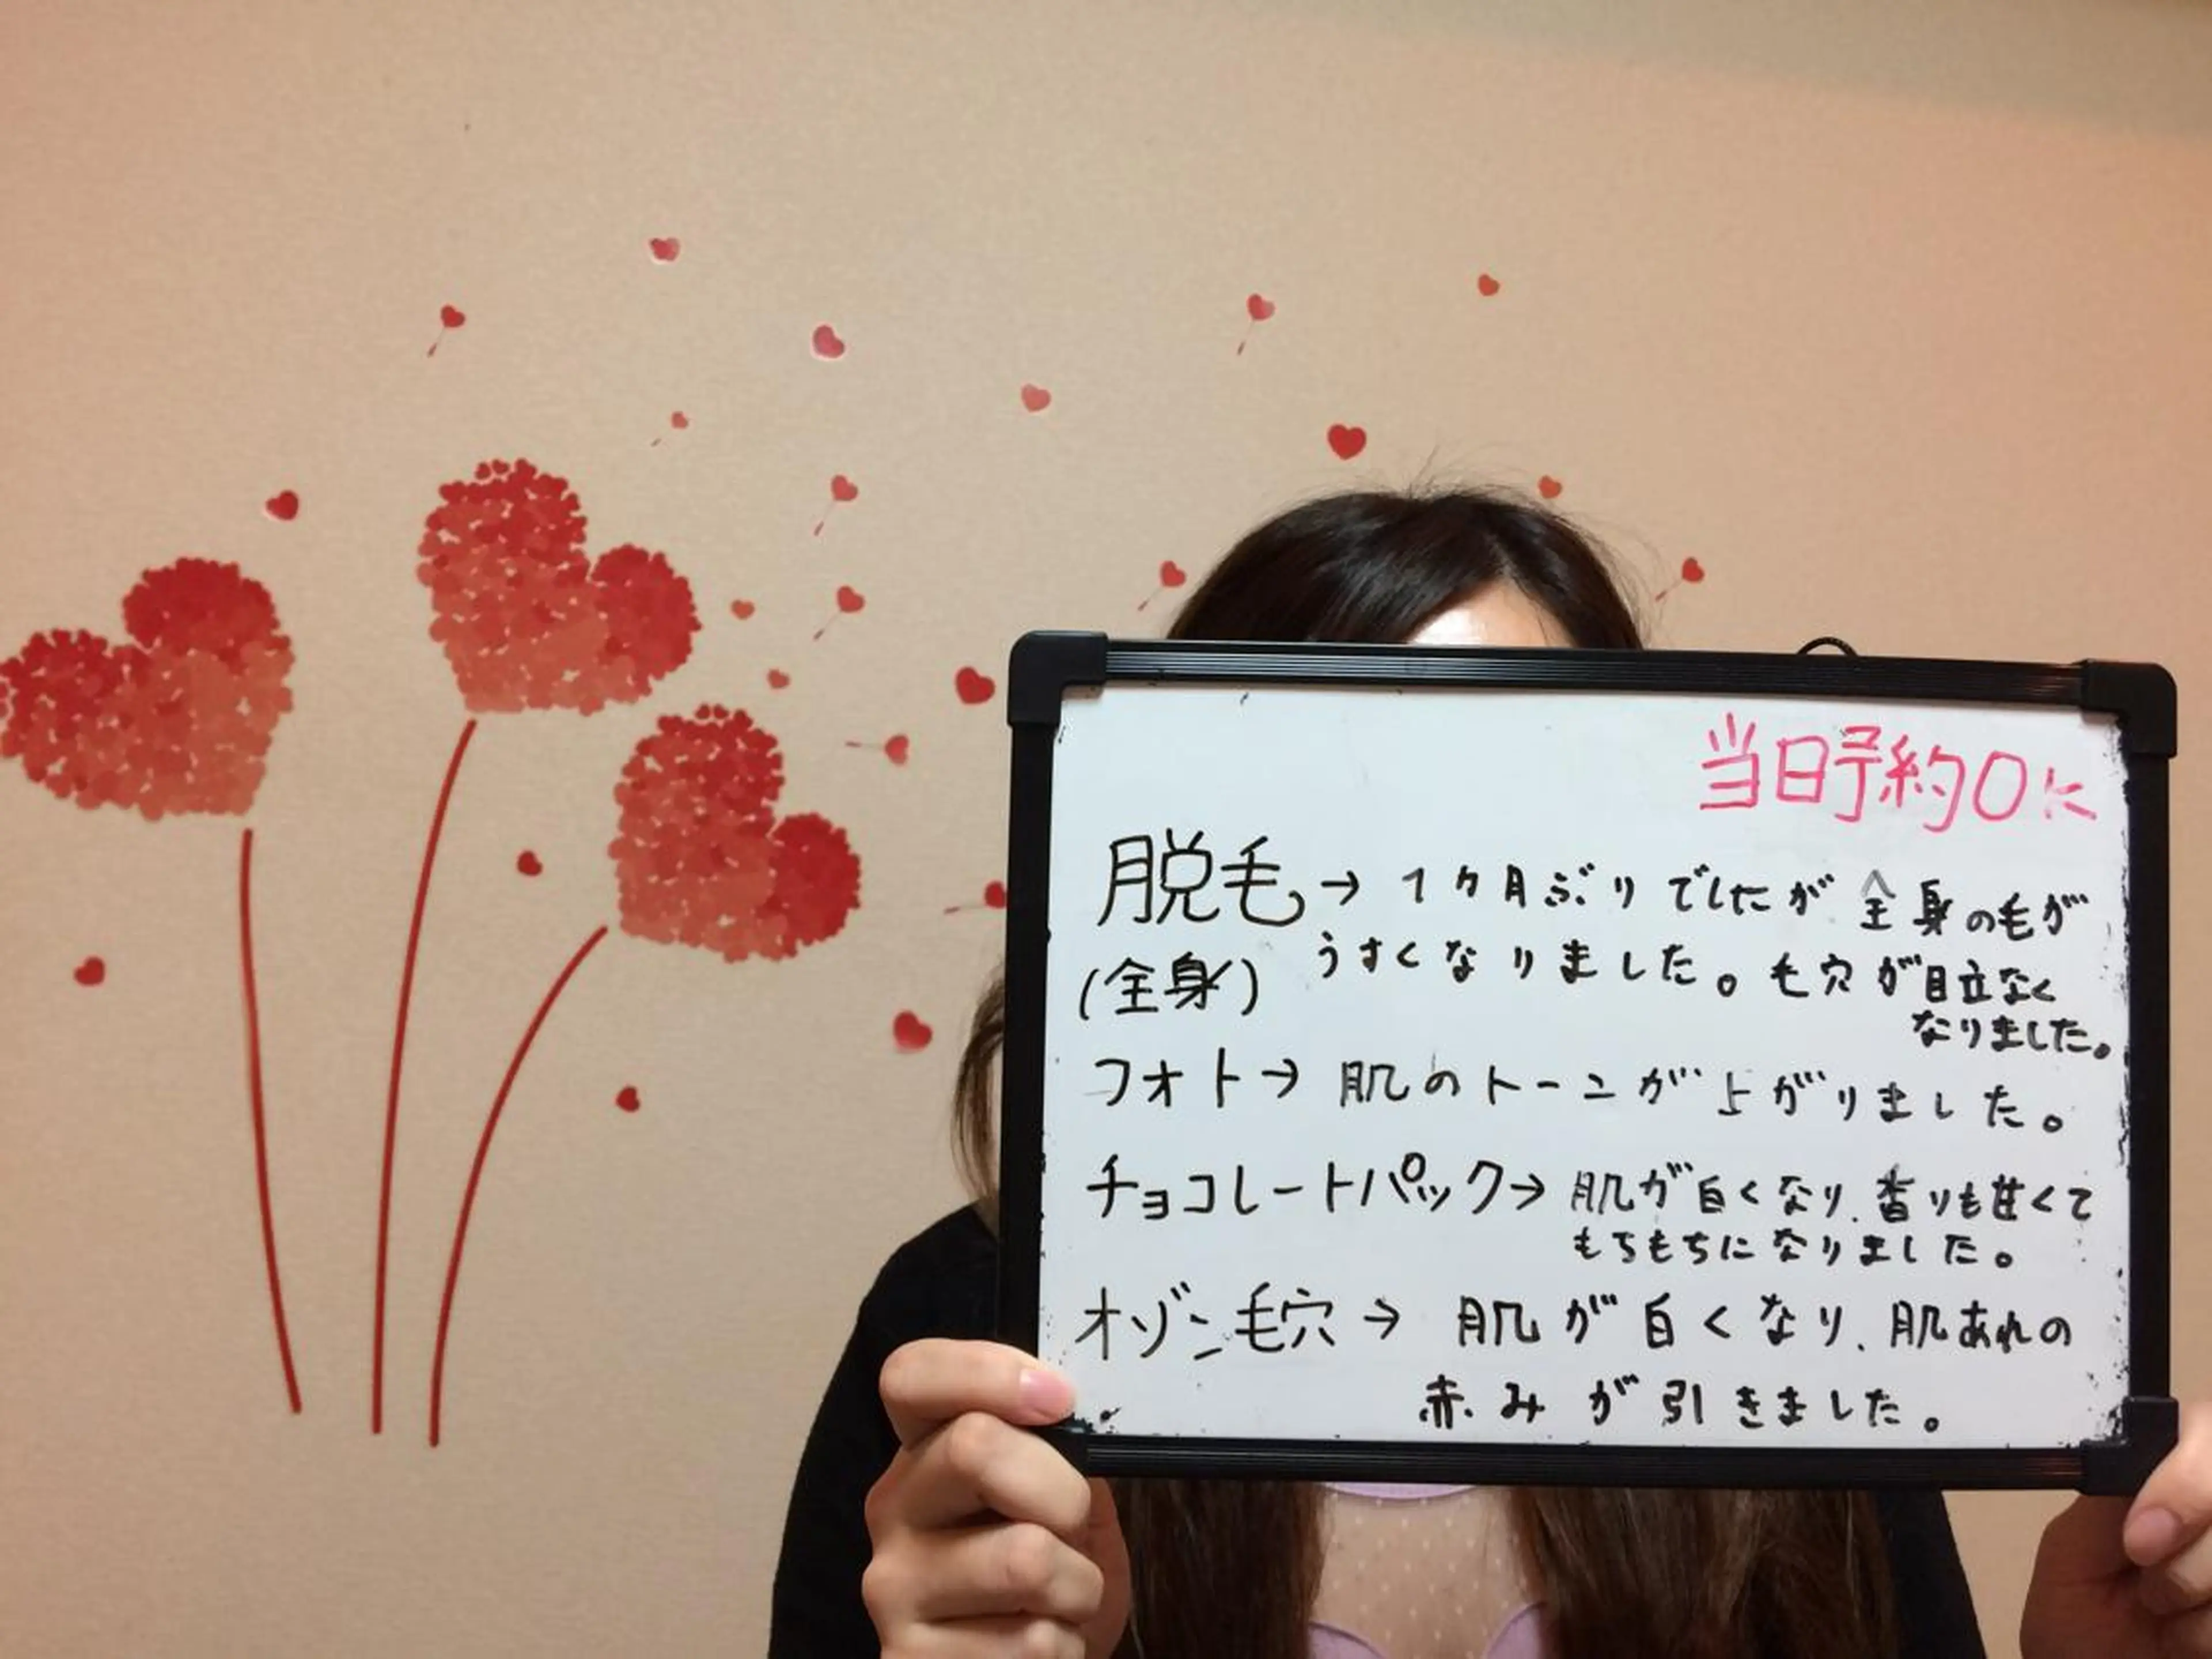 当日予約OK
脱毛→1ヵ月ぶりでしたが全身の毛が
(全身) うすくなりました。毛穴が目立なく
なりました。
フォト→肌のトーンが上がりました。
チョコレートパック→肌が白くなり、香りも甘くて
もちもちになりました。
オゾン毛穴→肌が白くなり、肌あれの
赤みが引きました。